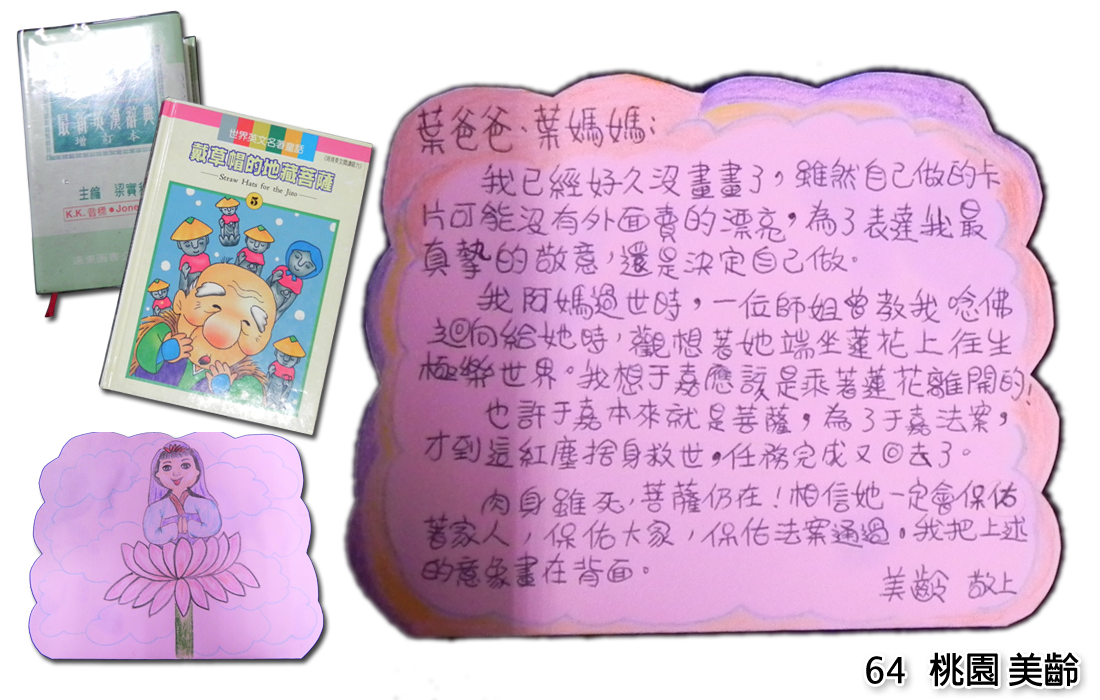 最新英漢辭典
增訂本
主編 梁實秋
K.K. 音標★Jone
世界英文名著童話
戴草帽的地藏菩薩
Straw Hats for the Jizo
5
葉爸爸、葉媽媽：
我已經好久沒畫畫了，雖然自己做的卡
片可能沒有外面賣的漂亮，為了表達我最
真摯的敬意，還是決定自己做。
我阿媽過世時，一位師姐曾教我唸佛
迴向給她時，觀想著她端坐蓮花上往生
極樂世界。我想于嘉應該是乘著蓮花離開的！
也許于嘉本來就是菩薩，為了于嘉法案，
才到這紅塵捨身救世，任務完成又回去了。
肉身雖死，菩薩仍在！相信她一定會保佑
著家人，保佑大家，保佑法案通過。我把上述
的意象畫在背面。
美齡 敬上
64 桃園 美齡